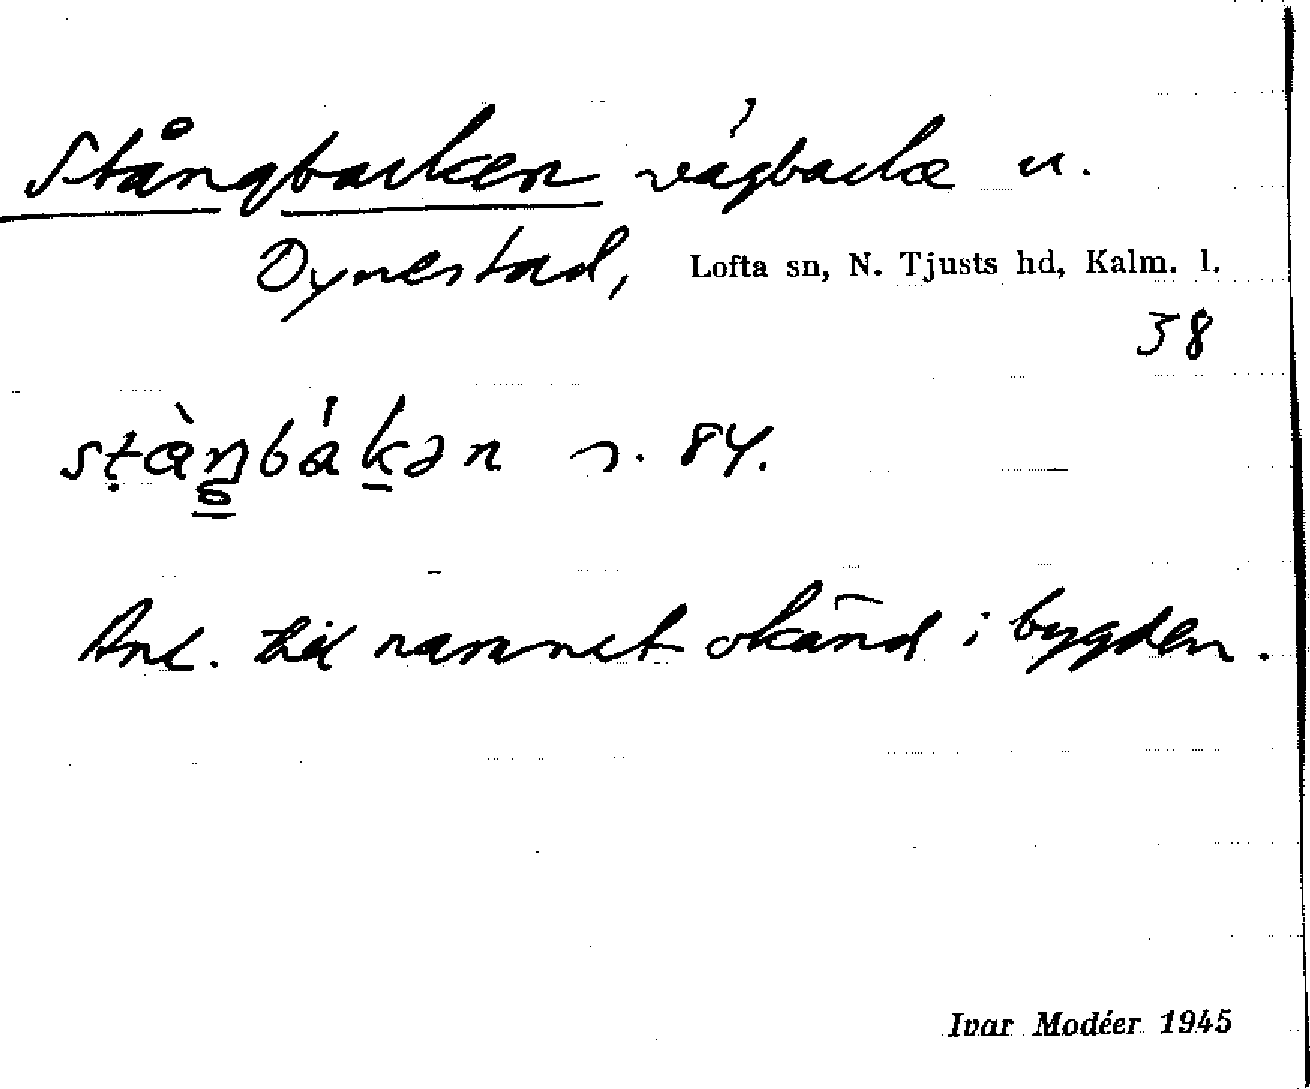 Stångbacken vägbacke u.
Dynestad, Lofta sn, N. Tjusts hd, Kalm. l.
38
stàŋbákən s. 84.
Anl. till namnet okänd i bygden.
Ivar Modéer 1945